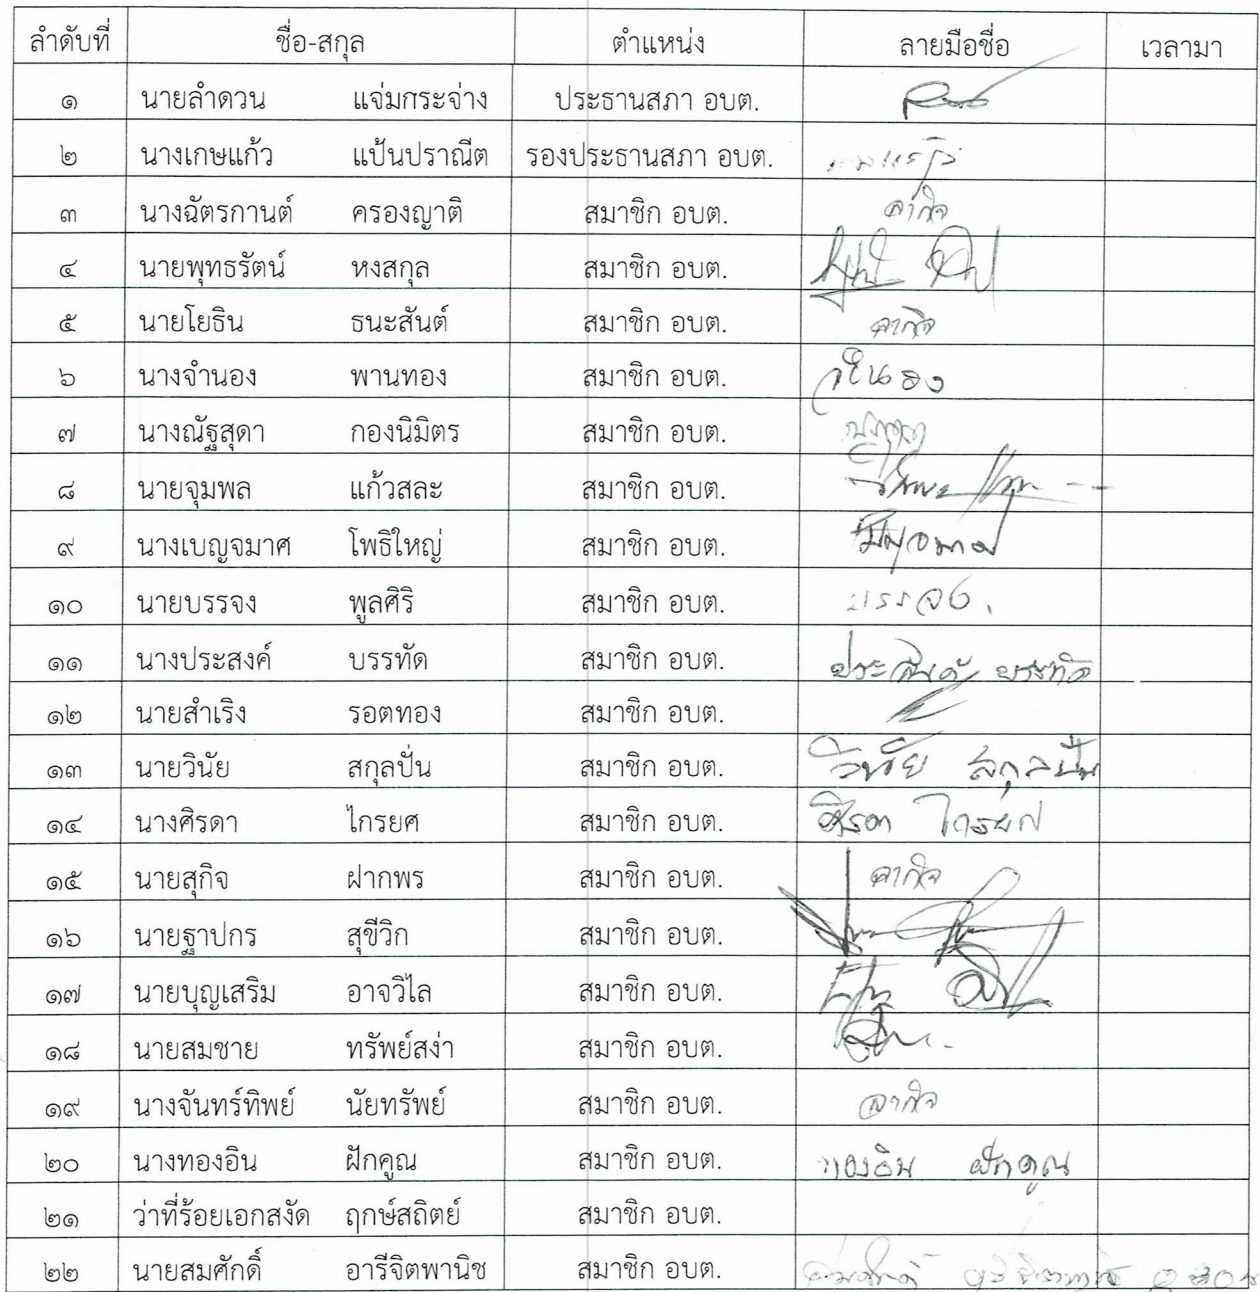 ลำดับที่ ชื่อ-สกุล ตำแหน่ง ลายมือชื่อ เวลามา
๑ นายลำดวน แจ่มกระจ่าง ประธานสภา อบต.
๒ นางเกษแก้ว แป้นปราณีต รองประธานสภา อบต.
๓ นางฉัตรกานต์ ครองญาติ สมาชิก อบต. ลากิจ
๔ นายพุทธรัตน์ หงสกุล สมาชิก อบต.
๕ นายโยธิน ธนะสันต์ สมาชิก อบต. ลากิจ
๖ นางจำนอง พานทอง สมาชิก อบต. จำนอง
๗ นางณัฐสุดา กองนิมิตร สมาชิก อบต.
๘ นายจุมพล แก้วสละ สมาชิก อบต.
๙ นางเบญจมาศ โพธิใหญ่ สมาชิก อบต. เบญจมาศ
๑๐ นายบรรจง พูลศิริ สมาชิก อบต. บรรจง
๑๑ นางประสงค์ บรรทัด สมาชิก อบต. ประสงค์ บรรทัด
๑๒ นายสำเริง รอตทอง สมาชิก อบต.
๑๓ นายวินัย สกุลปั่น สมาชิก อบต. วินัย สกุลปั่น
๑๔ นางศิรดา ไกรยศ สมาชิก อบต. ศิรดา ไกรยศ
๑๕ นายสุกิจ ฝากพร สมาชิก อบต. ลากิจ
๑๖ นายฐาปกร สุขีวิก สมาชิก อบต.
๑๗ นายบุญเสริม อาจวิไล สมาชิก อบต.
๑๘ นายสมชาย ทรัพย์สง่า สมาชิก อบต.
๑๙ นางจันทร์ทิพย์ นัยทรัพย์ สมาชิก อบต. ลากิจ
๒๐ นางทองอิน ฝักคูณ สมาชิก อบต. ทองอิน ฝักคูณ
๒๑ ว่าที่ร้อยเอกสงัด ฤกษ์สถิตย์ สมาชิก อบต.
๒๒ นายสมศักดิ์ อารีจิตพานิช สมาชิก อบต. สมศักดิ์